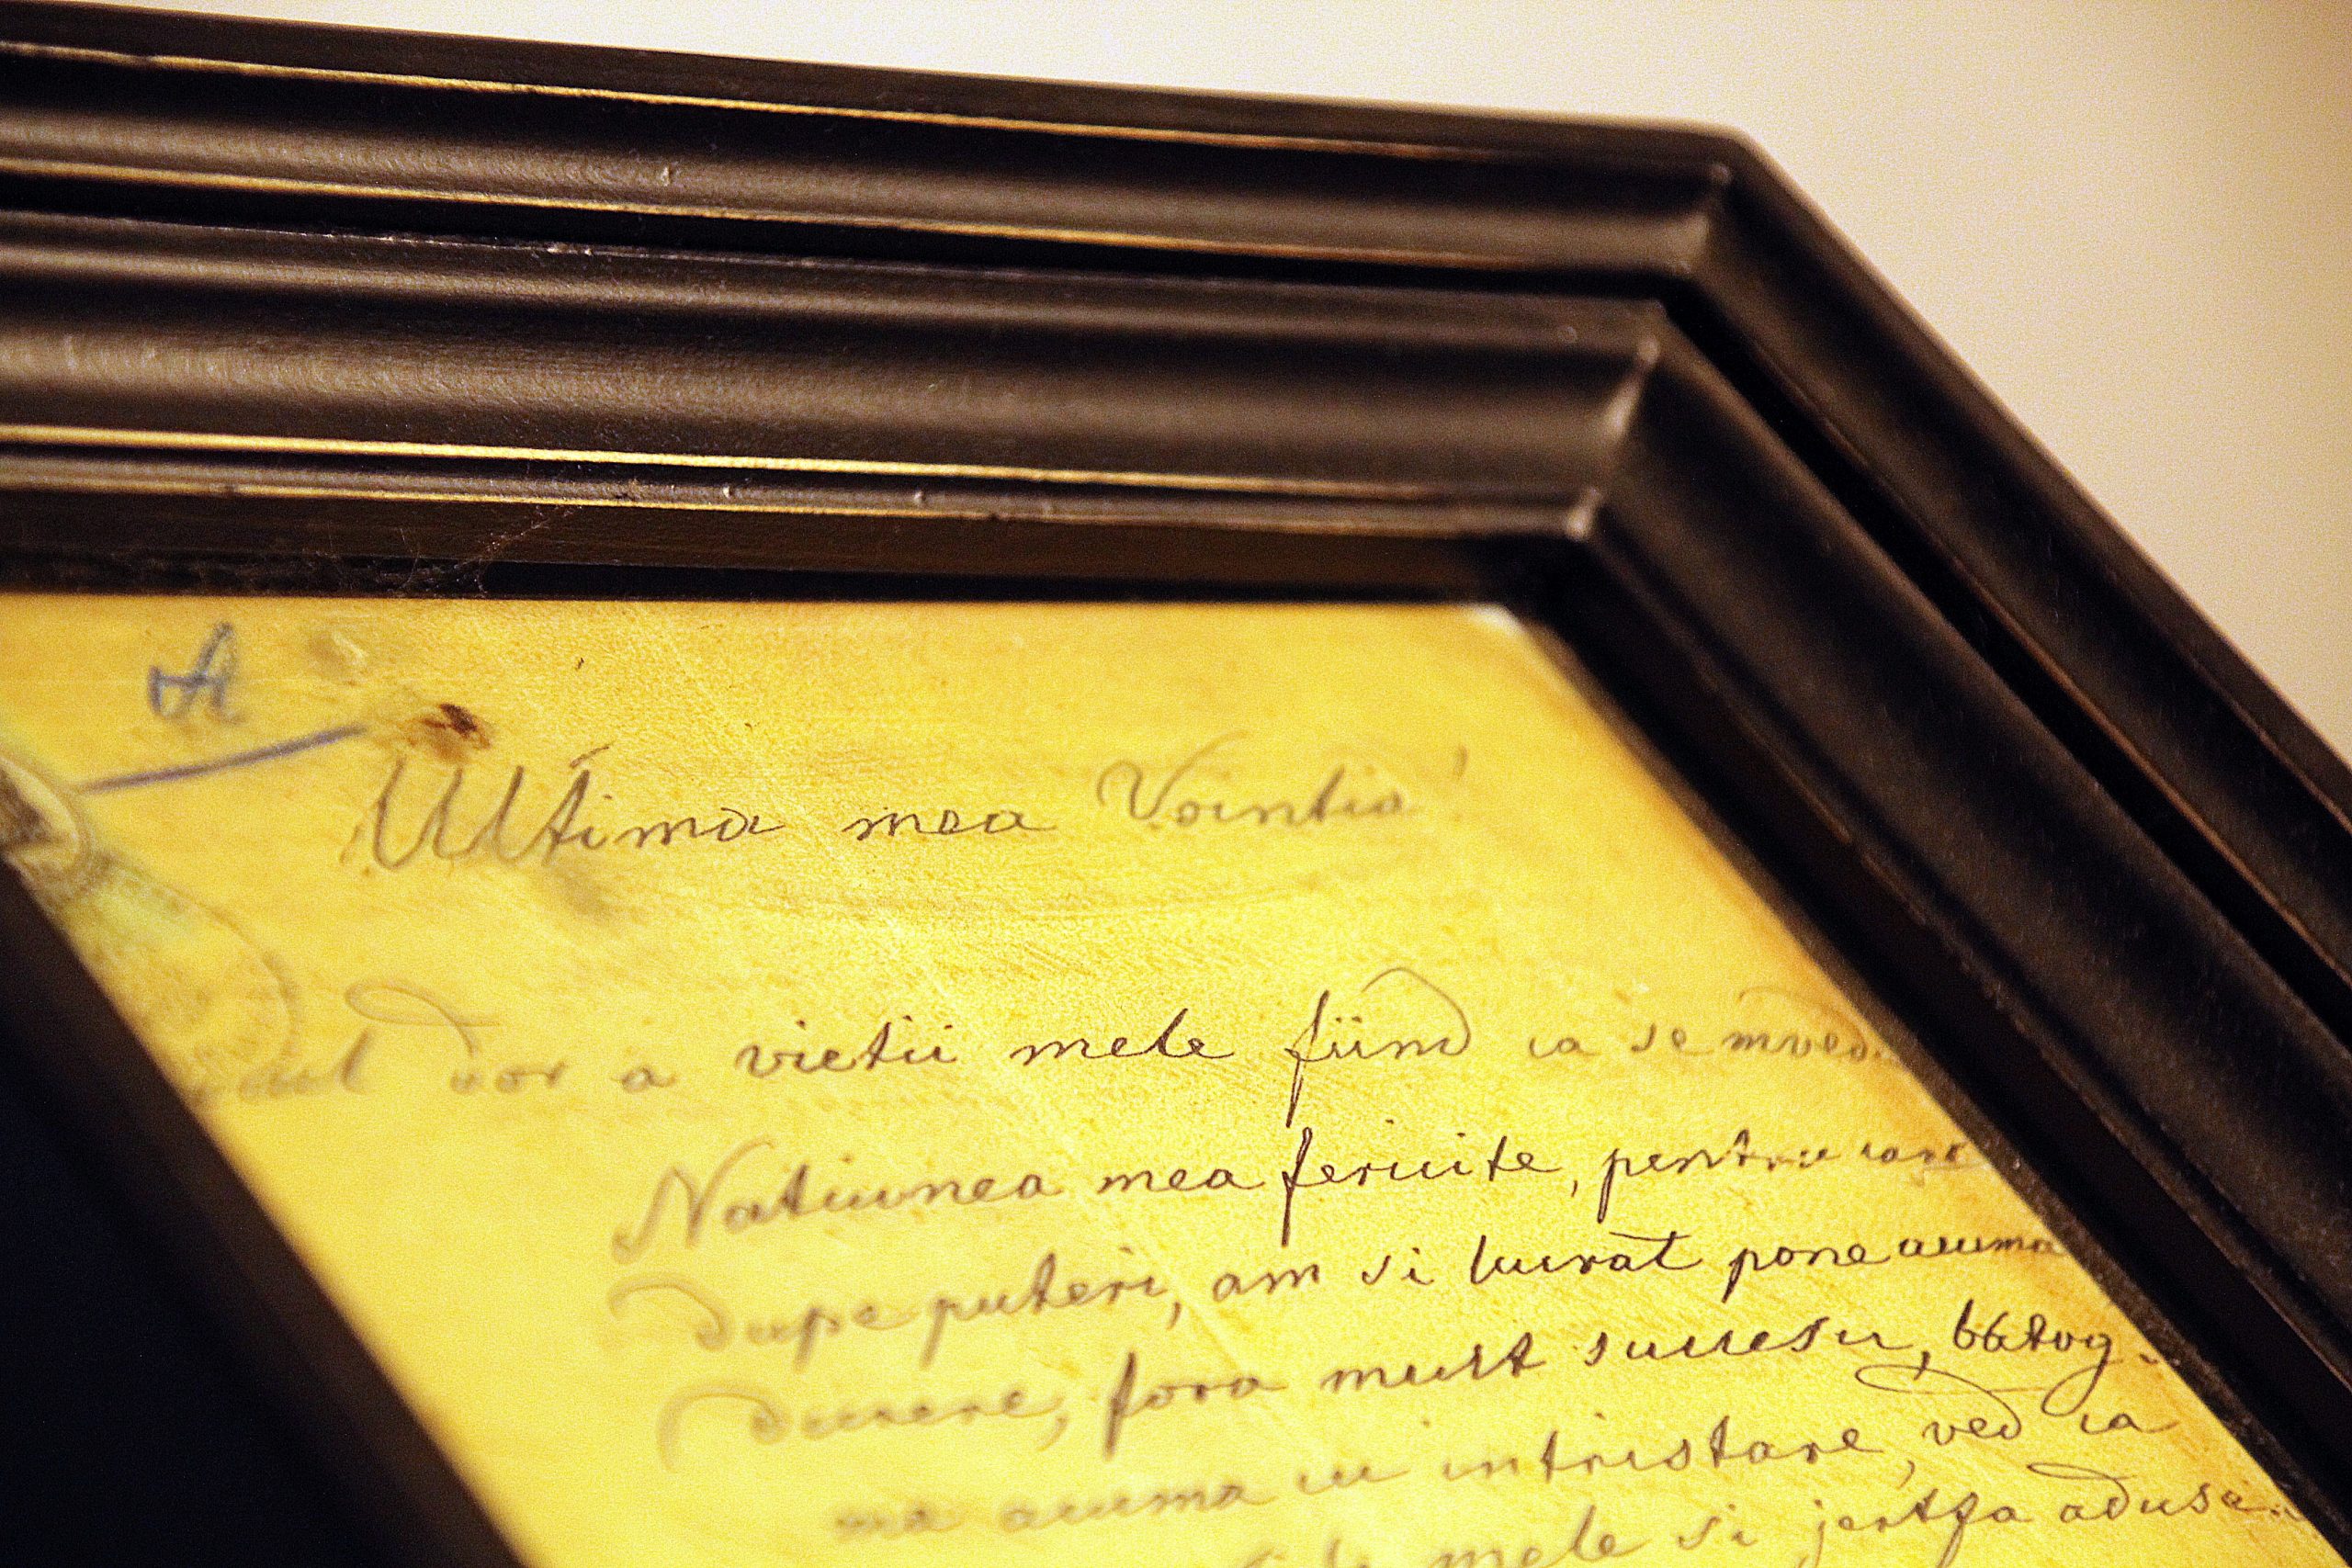 A
Ultima mea Vointia!
dor a vietii mele fiind ca se mi ved
Natiunea mea fericite, pentru care
dupe puteri, am si lucrat pone acuma
fora mult succesu,
ma acuma cu intristare, ved ca
mele si jertfa adusa